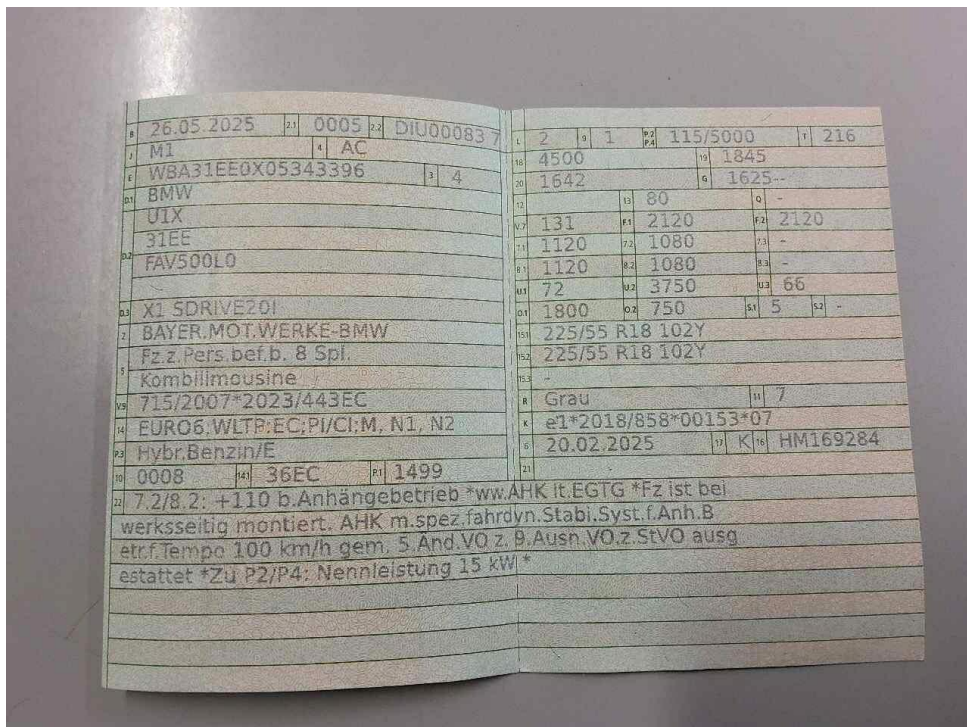 B 26.05.2025 2.1 0005 2.2 DIU00083 7
J M1 4 AC
E WBA31EE0X05343396 3 4
D.1 BMW
U1X
D.2 31EE
FAV500L0
D.3 X1 SDRIVE20I
2 BAYER.MOT.WERKE-BMW
5 Fz.z.Pers.bef.b. 8 Spl.
Kombilimousine
V.9 715/2007*2023/443EC
14 EURO6.WLTP;EC;PI/CI;M, N1, N2
P.3 Hybr.Benzin/E
10 0008 14.1 36EC P.1 1499
L 2 9 1 P.2 P.4 115/5000 T 216
18 4500 19 1845
20 1642 G 1625--
12 13 80 Q -
V.7 131 F.1 2120 F.2 2120
7.1 1120 7.2 1080 7.3 -
8.1 1120 8.2 1080 8.3 -
U.1 72 U.2 3750 U.3 66
O.1 1800 O.2 750 S.1 5 S.2 -
15.1 225/55 R18 102Y
15.2 225/55 R18 102Y
15.3 -
R Grau 11 7
K e1*2018/858*00153*07
6 20.02.2025 17 K 16 HM169284
21
22 7.2/8.2: +110 b.Anhängebetrieb *ww.AHK lt.EGTG *Fz ist bei
werksseitig montiert. AHK m.spez.fahrdyn.Stabi.Syst.f.Anh.B
etr.f.Tempo 100 km/h gem. 5.Änd.VO z. 9.Ausn.VO.z.StVO ausg
estattet *Zu P2/P4: Nennleistung 15 kW *